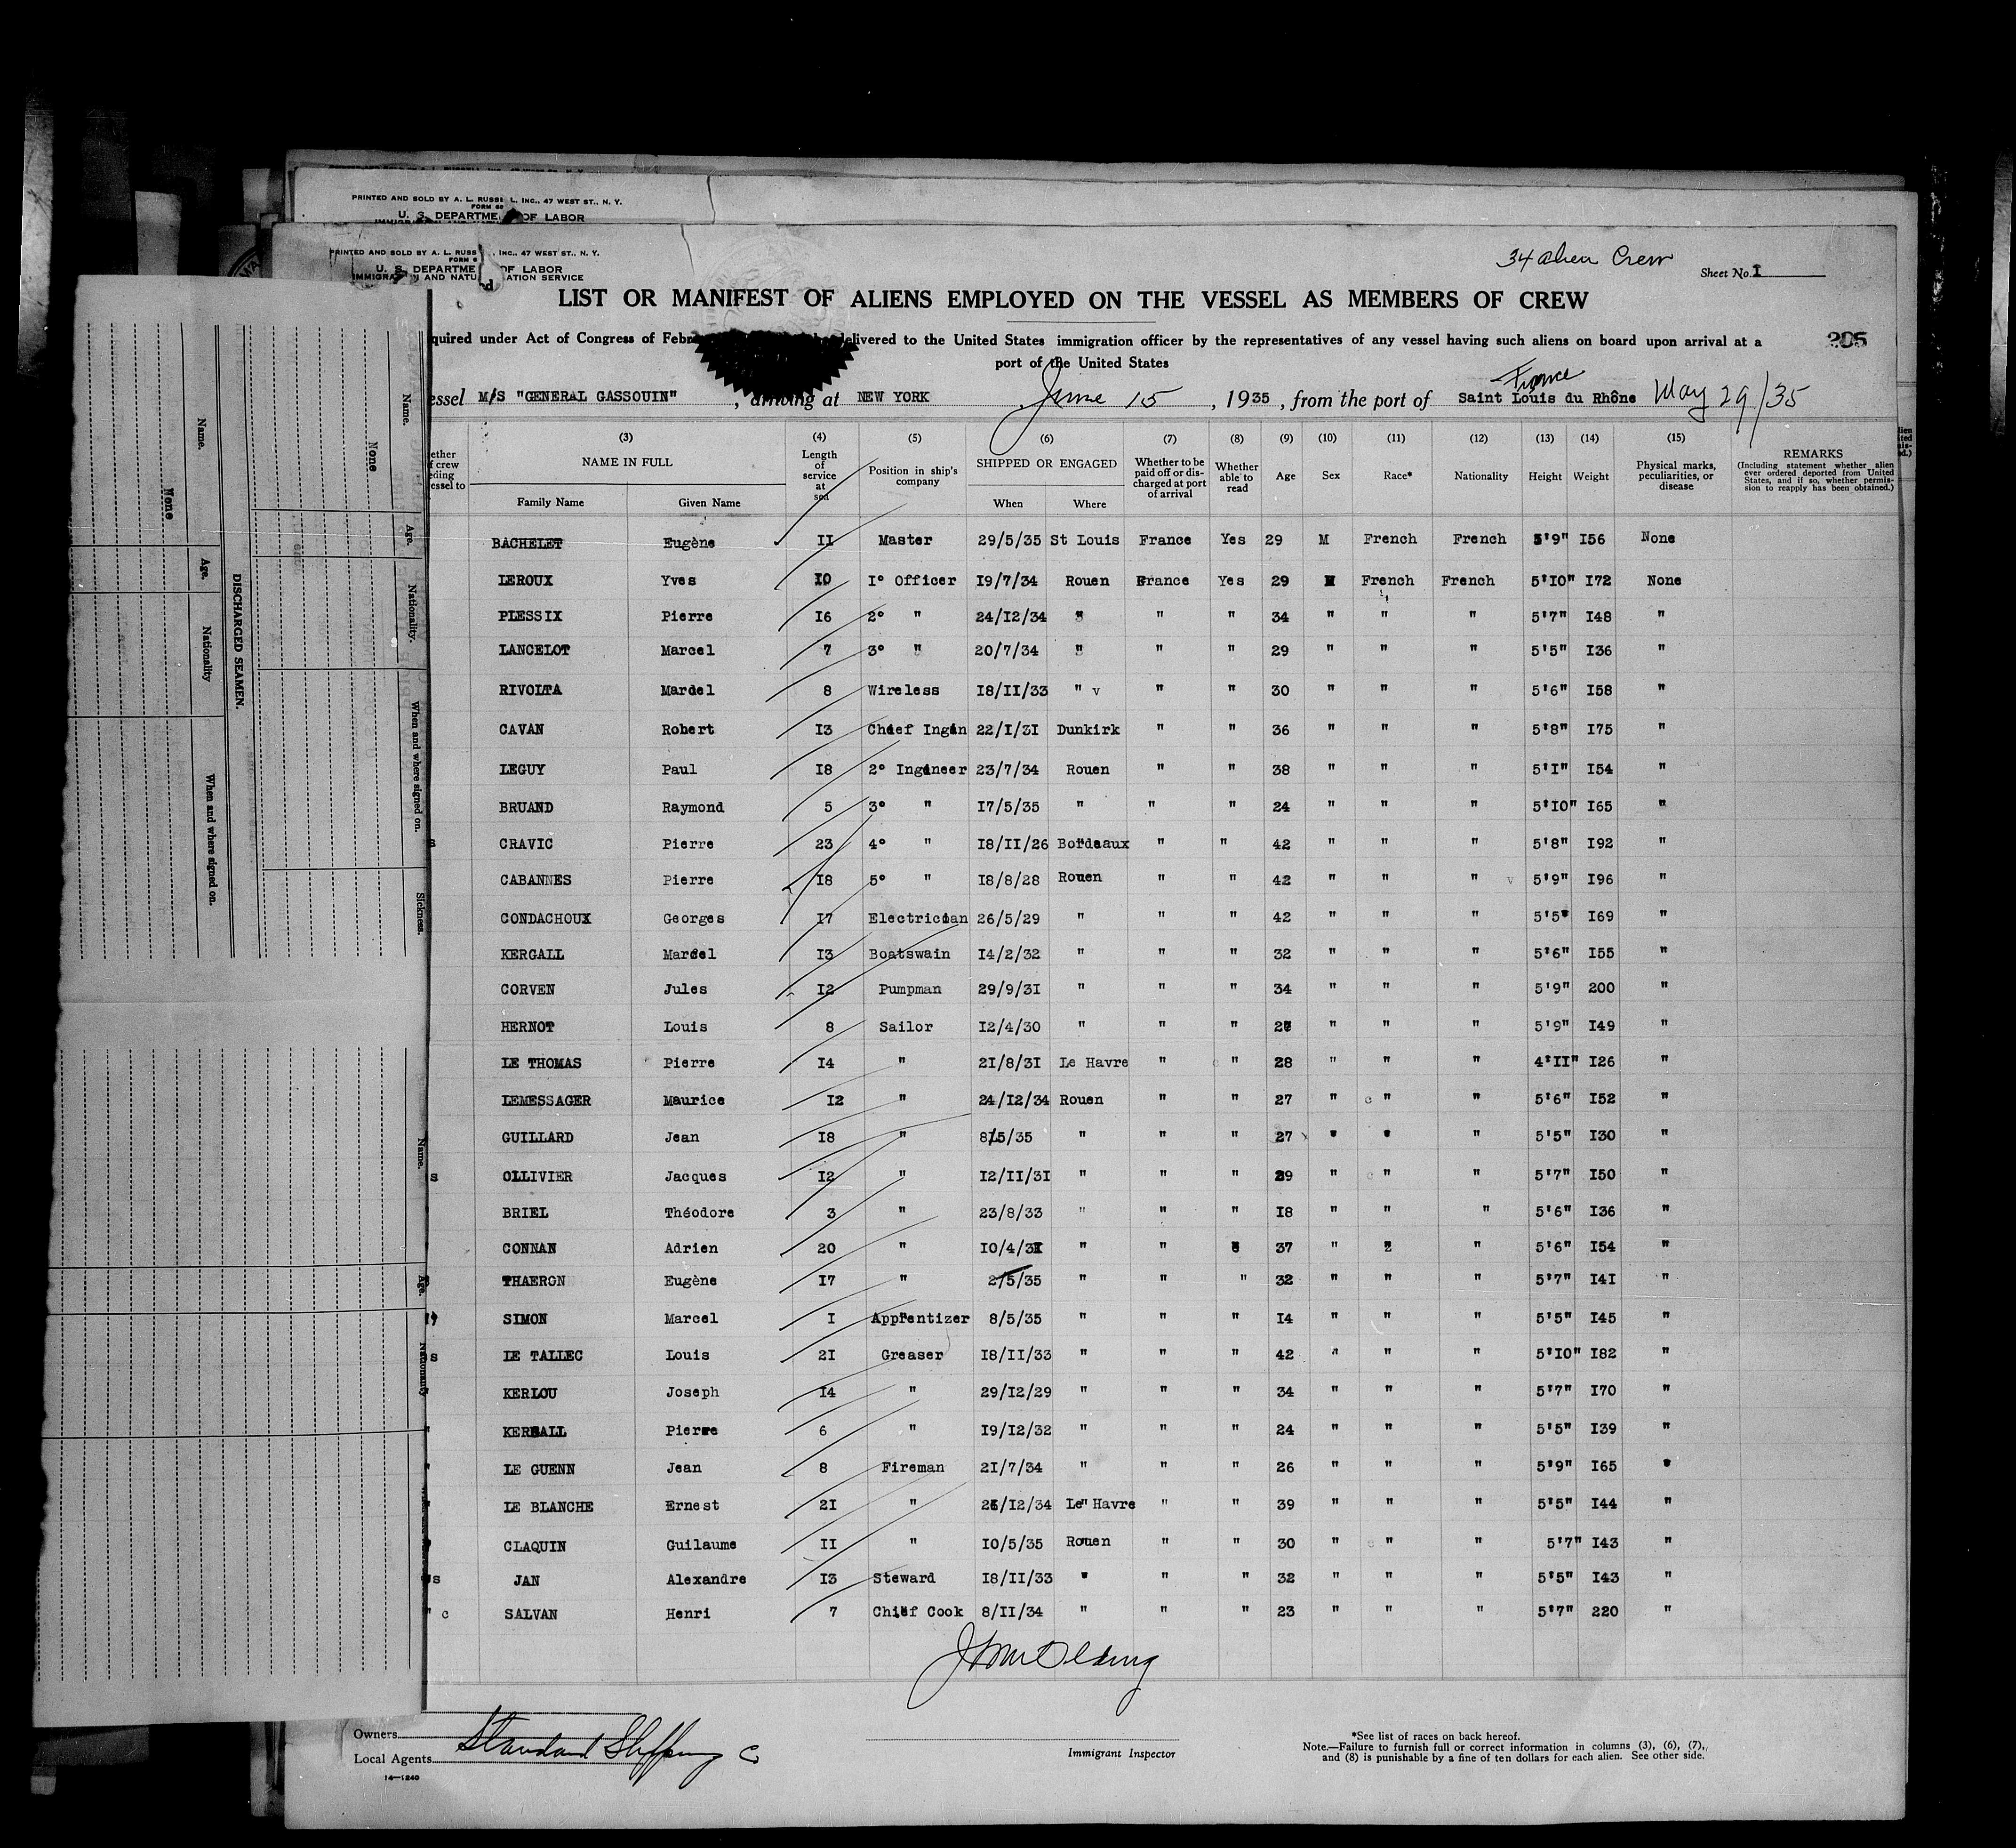 PRINTED AND SOLD BY A. L. RUSS L, INC., 47 WEST ST., N. Y.
U. S. DEPARTME OF LABOR
PRINTED AND SOLD BY A. L. RUSS , INC., 47 WEST ST., N. Y.
U. S. DEPARTME OF LABOR
IMMIGRA N AND NATU ATION SERVICE
34 alien Crew
Sheet No. I
LIST OR MANIFEST OF ALIENS EMPLOYED ON THE VESSEL AS MEMBERS OF CREW
quired under Act of Congress of Febr elivered to the United States immigration officer by the representatives of any vessel having such aliens on board upon arrival at a
205
port of the United States
France
essel M/S "GENERAL GASSOUIN" , arriving at NEW YORK , June 15 , 1935 , from the port of Saint Louis du Rhône May 29/35
(3) (4) (5) (6) (7) (8) (9) (10) (11) (12) (13) (14) (15)
NAME IN FULL Length of service at sea Position in ship's company SHIPPED OR ENGAGED Whether to be paid off or discharged at port of arrival Whether able to read Age Sex Race* Nationality Height Weight Physical marks, peculiarities, or disease REMARKS
(Including statement whether alien ever ordered deported from United States, and if so, whether permission to reapply has been obtained.)
Family Name Given Name When Where
BACHELET Eugène II Master 29/5/35 St Louis France Yes 29 M French French 5'9" I56 None
LEROUX Yves IO I° Officer I9/7/34 Rouen France Yes 29 M French French 5'IO" I72 None
PLESSIX Pierre I6 2° " 24/I2/34 " " " 34 " " " 5'7" I48 "
LANCELOT Marcel 7 3° " 20/7/34 " " " 29 " " " 5'5" I36 "
RIVOLTA Marcel 8 Wireless I8/II/33 " v " " 30 " " " 5'6" I58 "
CAVAN Robert I3 Chief Ingin 22/I/3I Dunkirk " " 36 " " " 5'8" I75 "
LEGUY Paul I8 2° Ingineer 23/7/34 Rouen " " 38 " " " 5'I" I54 "
BRUAND Raymond 5 3° " I7/5/35 " " " 24 " " " 5'IO" I65 "
CRAVIC Pierre 23 4° " I8/II/26 Bordeaux " " 42 " " " 5'8" I92 "
CABANNES Pierre I8 5° " I8/8/28 Rouen " " 42 " " " v 5'9" I96 "
CONDACHOUX Georges I7 Electrician 26/5/29 " " " 42 " " " 5'5" I69 "
KERGALL Marcel I3 Boatswain I4/2/32 " " " 32 " " " 5'6" I55 "
CORVEN Jules I2 Pumpman 29/9/3I " " " 34 " " " 5'9" 200 "
HERNOT Louis 8 Sailor I2/4/30 " " " 27 " " " 5'9" I49 "
LE THOMAS Pierre I4 " 2I/8/3I Le Havre " " 28 " " " 4'II" I26 "
LEMESSAGER Maurice I2 " 24/I2/34 Rouen " " 27 " " " 5'6" I52 "
GUILLARD Jean I8 " 8/5/35 " " " 27 " " " 5'5" I30 "
OLLIVIER Jacques I2 " I2/II/3I " " " 29 " " " 5'7" I50 "
BRIEL Théodore 3 " 23/8/33 " " " I8 " " " 5'6" I36 "
CONNAN Adrien 20 " IO/4/3I " " 37 " " 5'6" I54 "
THAERON Eugène I7 " 2/5/35 " " " 32 " " " 5'7" I4I "
SIMON Marcel I Apprentizer 8/5/35 " " " I4 " " " 5'5" I45 "
LE TALLEC Louis 2I Greaser I8/II/33 " " " 42 " " " 5'IO" I82 "
KERLOU Joseph I4 " 29/I2/29 " " " 34 " " " 5'7" I70 "
KERGALL Pierre 6 " I9/I2/32 " " " 24 " " " 5'5" I39 "
LE GUENN Jean 8 Fireman 2I/7/34 " " " 26 " " " 5'9" I65 "
LE BLANCHE Ernest 2I " /I2/34 Le Havre " " 39 " " " 5'5" I44 "
CLAQUIN Guilaume II " IO/5/35 Rouen " " 30 " " " 5'7" I43 "
JAN Alexandre I3 Steward I8/II/33 " " " 32 " " " 5'5" I43 "
SALVAN Henri 7 Chief Cook 8/II/34 " " " 23 " " " 5'7" 220 "
Owners
Local Agents Standard Shipping Co
14—1240
Immigrant Inspector
*See list of races on back hereof.
Note.—Failure to furnish full or correct information in columns (3), (6), (7),
and (8) is punishable by a fine of ten dollars for each alien. See other side.
Name. Age. Nationality. When and where signed on. Sickness.
None
DISCHARGED SEAMEN.
Name. Age. Nationality When and where signed on.
None
Name. Age. Nationality